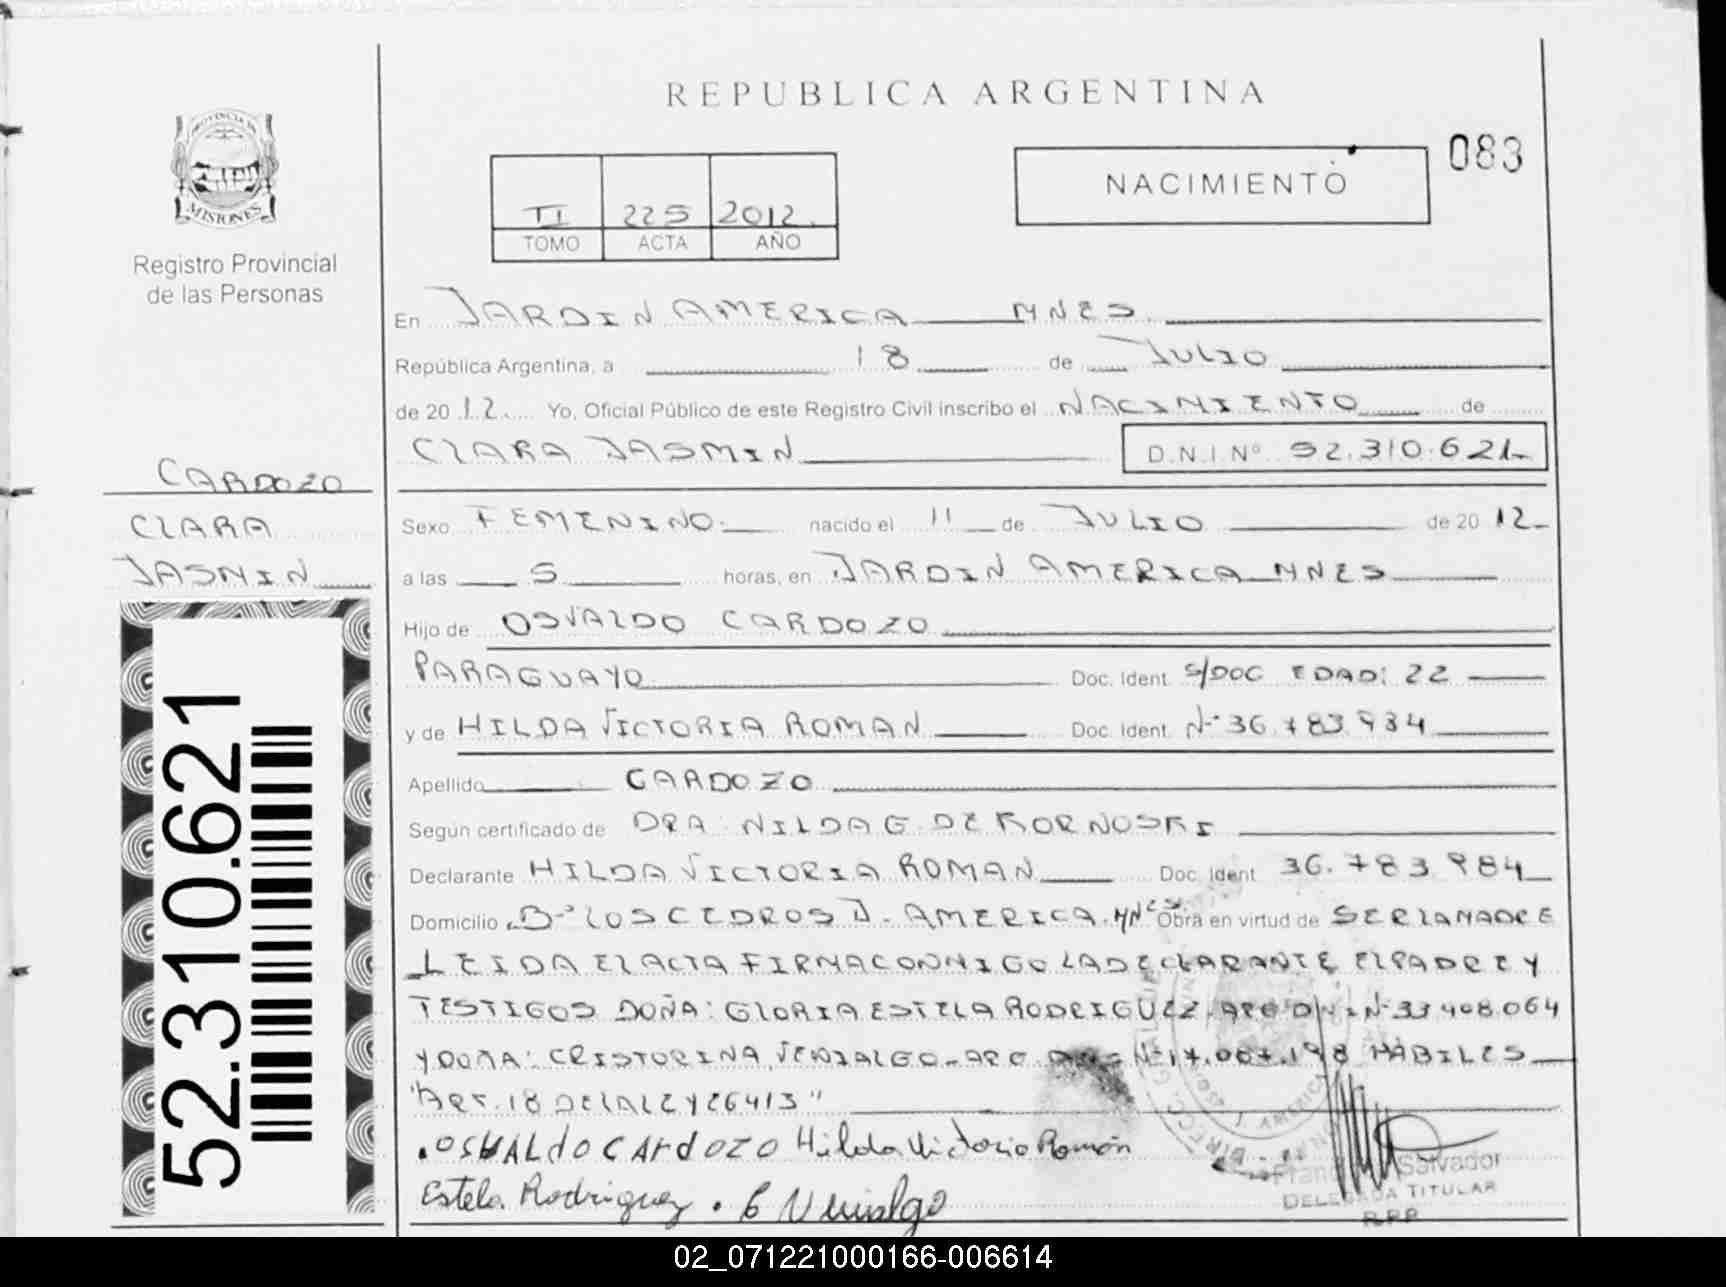 REPUBLICA ARGENTINA
PROVINCIA DE
MISIONES
Registro Provincial
de las Personas
NACIMIENTO
083
II 225 2012.
TOMO ACTA AÑO
En JARDIN AMERICA MNES
República Argentina, a 18 de JULIO
de 2012. Yo, Oficial Público de este Registro Civil inscribo el NACIMIENTO de
CLARA JASMIN D.N.I. Nº 52.310.621
CARDOZO
CLARA
JASMIN
Sexo FEMENINO. nacido el 11 de JULIO de 2012
a las 5 horas, en JARDIN AMERICA MNES
Hijo de OSVALDO CARDOZO
PARAGUAYO Doc. Ident. S/DOC EDAD: 22
y de HILDA VICTORIA ROMAN Doc. Ident. Nº 36.783.934
Apellido CARDOZO
Según certificado de DRA. NILDA G. DE KORNOSKI
Declarante HILDA VICTORIA ROMAN Doc. Ident. 36.783.984
Domicilio Bº LOS CEDROS J. AMERICA. MNES Obra en virtud de SER LA MADRE
LEIDA EL ACTA FIRMA CONMIGO LA DECLARANTE, EL PADRE Y
TESTIGOS DOÑA: GLORIA ESTELA RODRIGUEZ. ARG. DNI Nº 33.408.064
Y DOÑA: CRISTORINA ARG. HABILES
"ART. 18 DE LA LEY 26413"
52.310.621
OSVALdO CArdOZO Hilda Victoria Román
Estela Rodriguez.
Salvador
DELEGADA TITULAR
R.P.P.
02_071221000166-006614